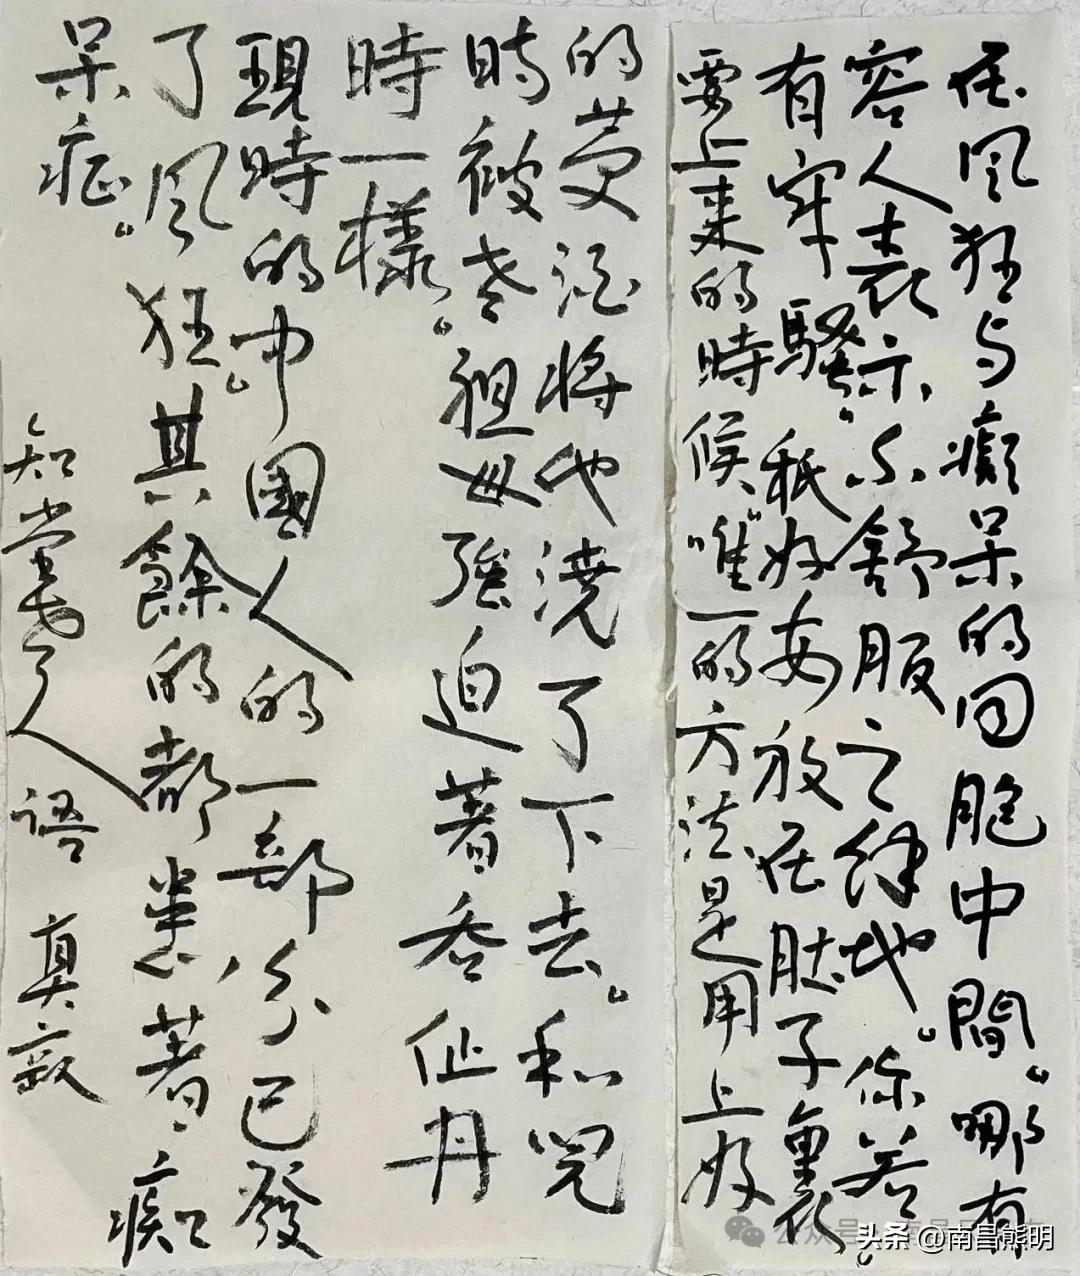 在风狂与癡呆的同胞中間。哪有
容人表示不舒服之餘地。你若
有牢騷。衹好安放在肚子裏。
要上来的時候。唯一的方法是用上好
的黄酒将他澆了下去。和兒
時被老。祖母强迫著吞仙丹
時一樣。
現時的中國人的一部分已發
了风狂。其餘的都患著痴
呆症。
知堂老人語 真寂
公众号
头条 @南昌熊明